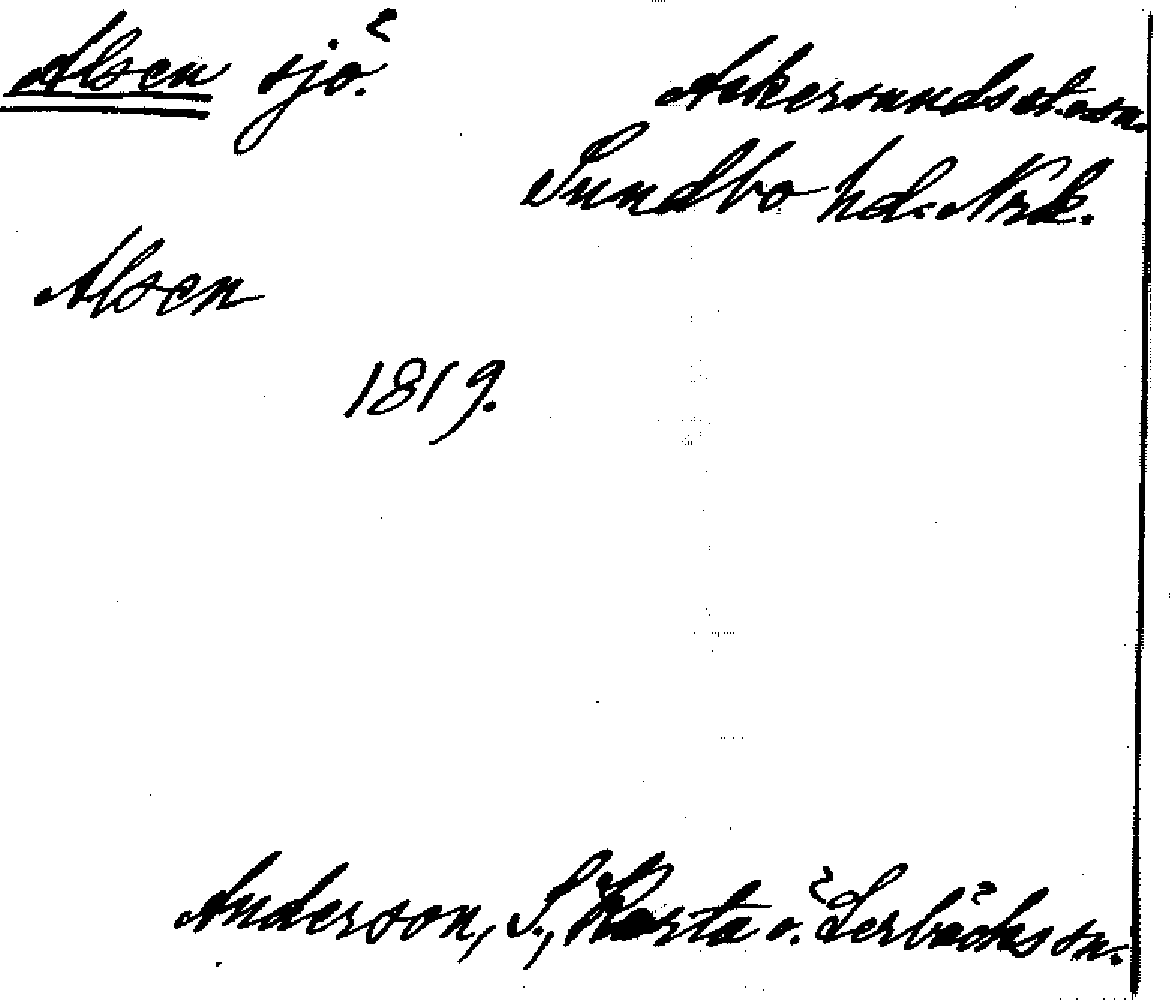 Alsen sjö.
Askersunds st. o. sn.
Sundbo hd. Nrk.
Alsen
1819.
Anderson, S., Karta ö. Lerbäcks sn.